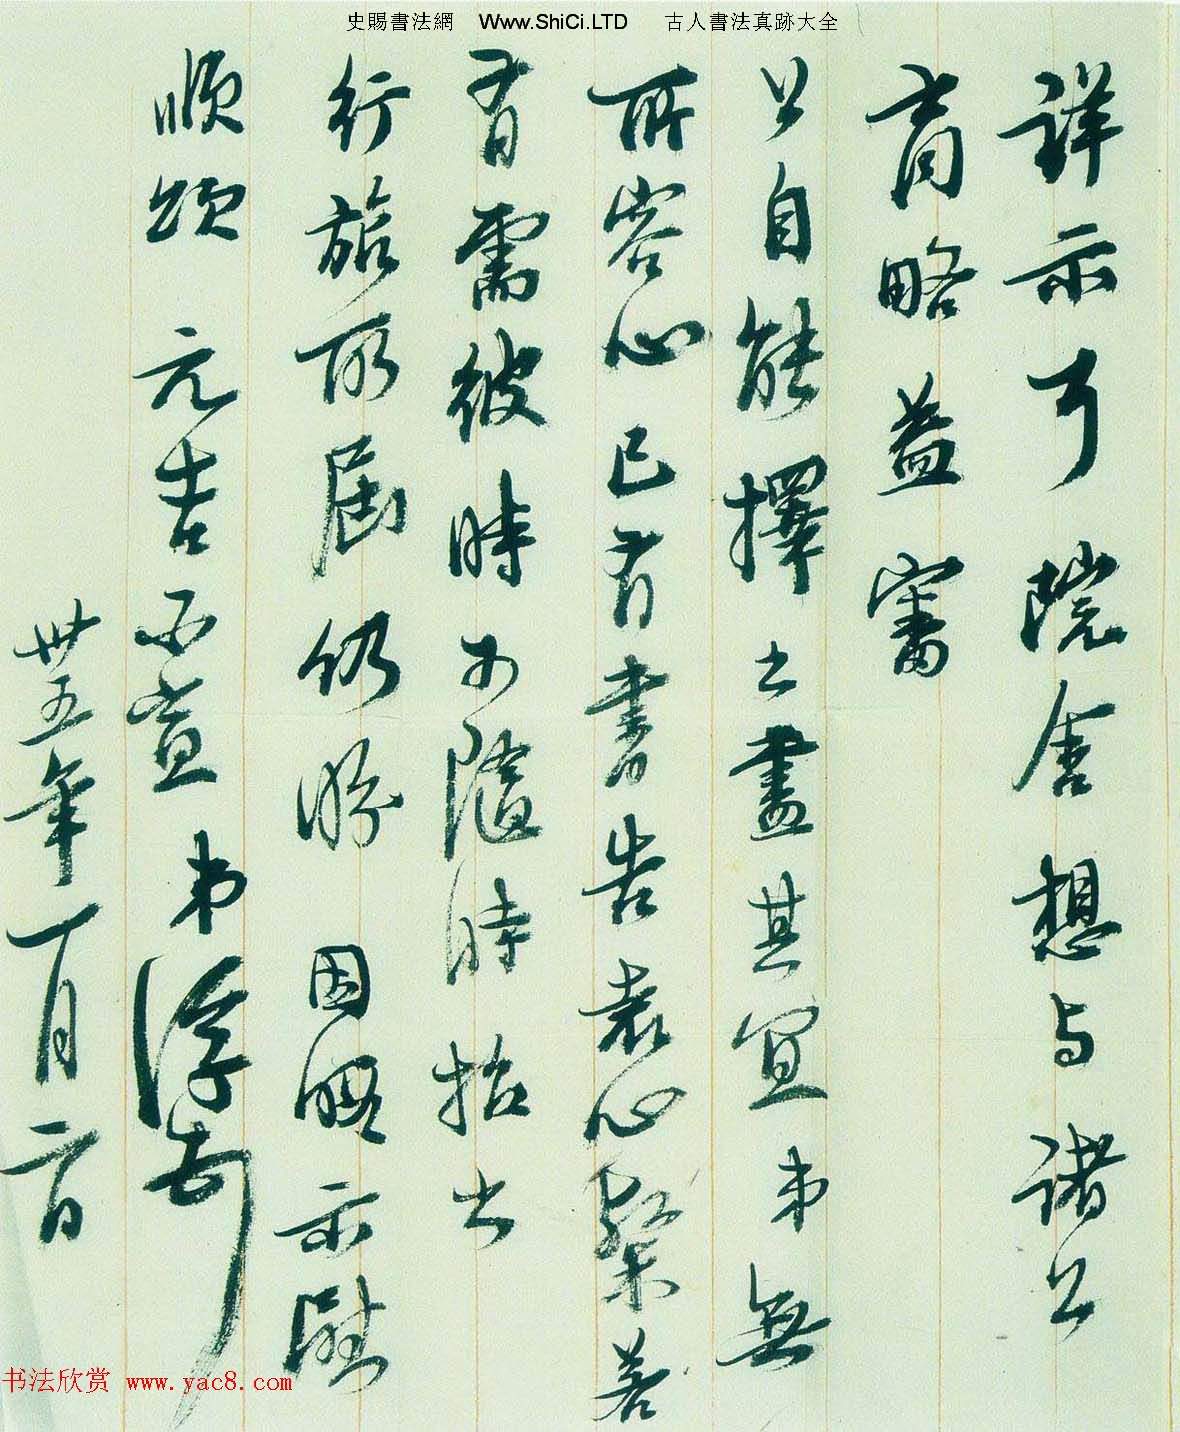 史賜書法網 Www.ShiCi.LTD 古人書法真跡大全
詳示 院舍想与諸公
商略益審
公自能擇之盡其宜弟無
所容心已有書告袁心粲若
有需彼時可隨時 出
行旅所届仍盼因暇示慰
順頌 元吉不宣 弟浮
卅五年一月二日
书法欣赏 www.yac8.com